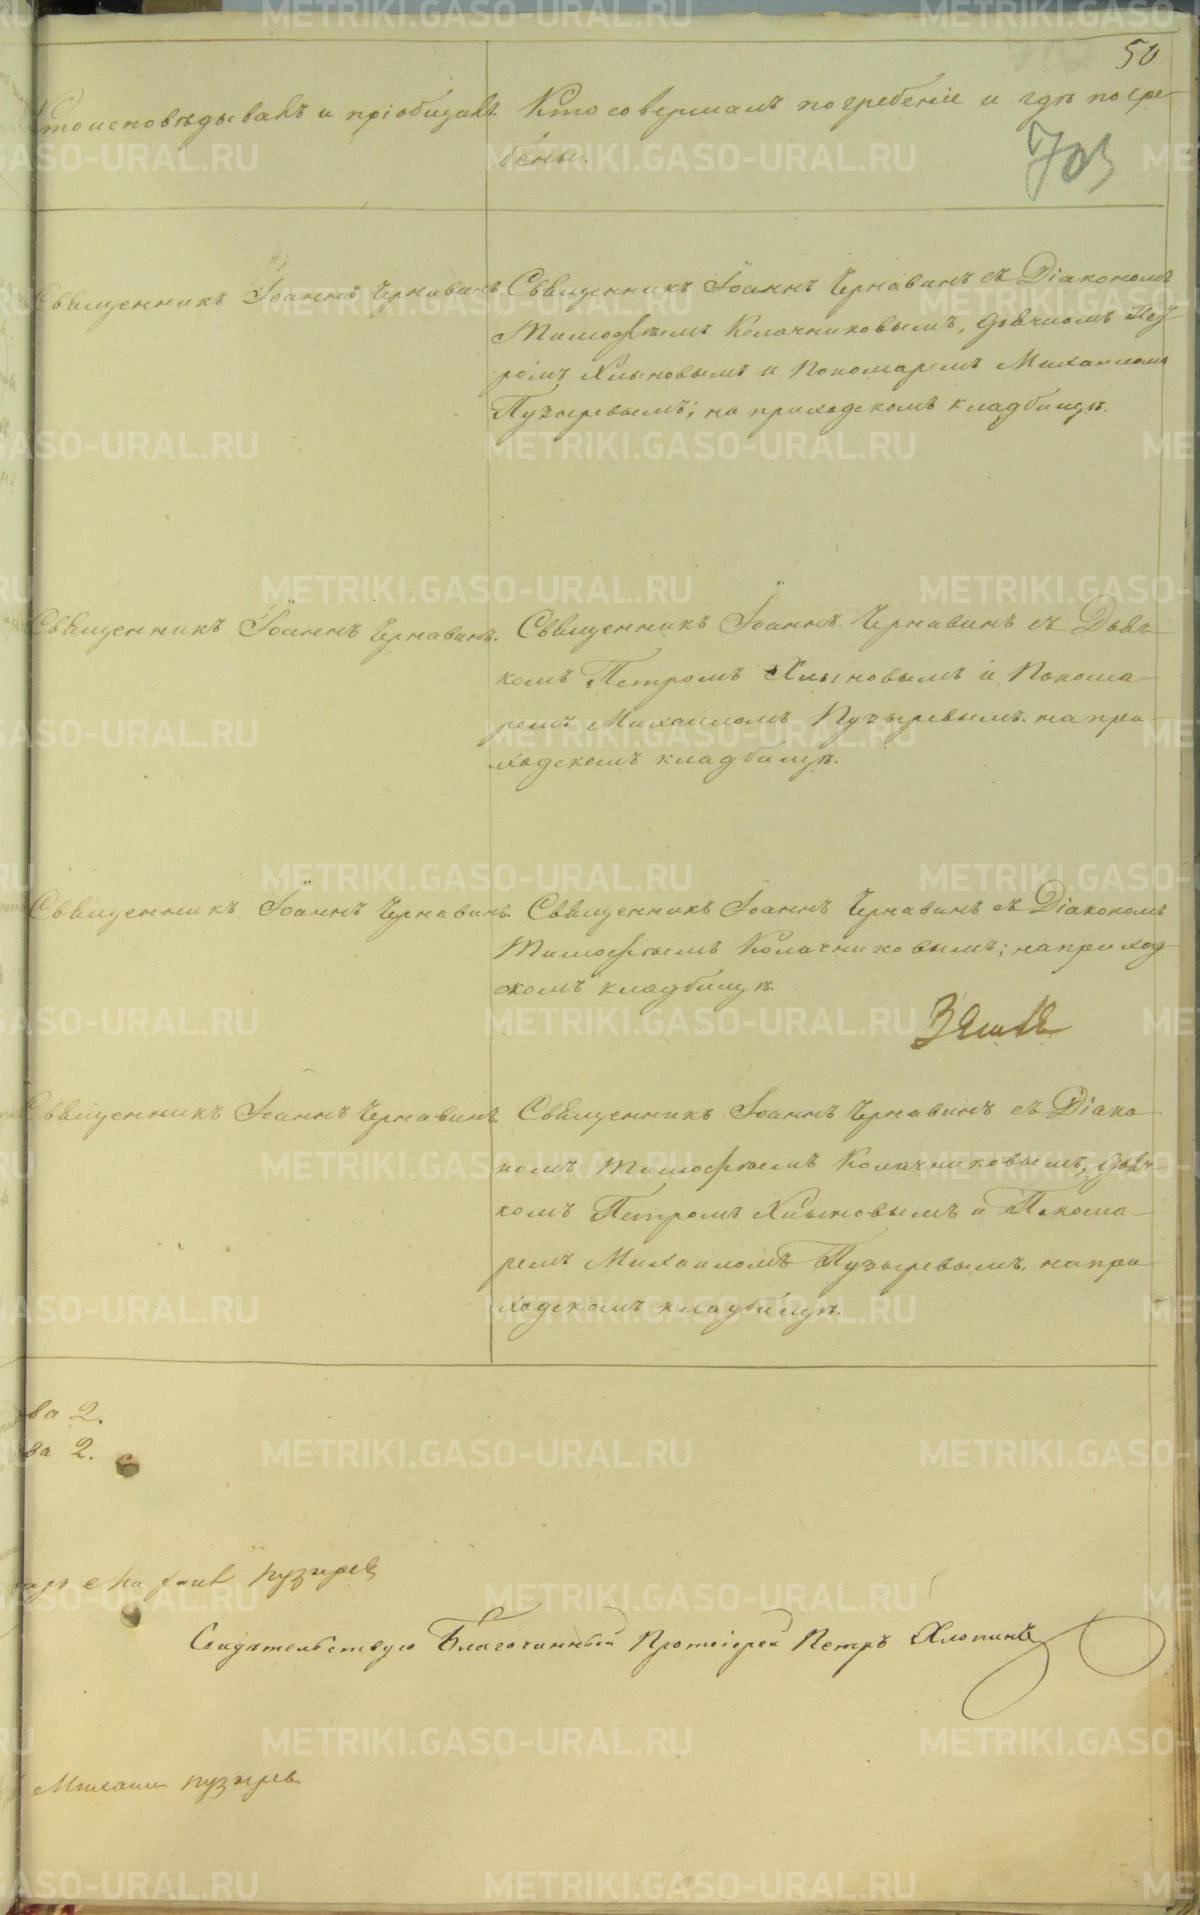 50
Кто исповѣдывалъ и пріобщалъ.
Кто совершалъ погребеніе и гдѣ погре-
бены.
703
Священникъ Іоаннъ Чернавинъ
Священникъ Іоаннъ Чернавинъ съ Діакономъ
Тимофѣемъ Колачниковымъ, дьячкомъ Пет-
ромъ Хлыновымъ и Пономаремъ Михаиломъ
Пузыревымъ; на приходскомъ кладбищѣ.
Священникъ Іоаннъ Чернавинъ.
Священникъ Іоаннъ Чернавинъ съ Дьяч-
комъ Петромъ Хлыновымъ и Понома-
ремъ Михаиломъ Пузыревымъ. на при-
ходскомъ кладбищѣ.
Священникъ Іоаннъ Чернавинъ.
Священникъ Іоаннъ Чернавинъ съ Діакономъ
Тимофѣемъ Колачниковымъ; на приход-
скомъ кладбищѣ.
Священникъ Іоаннъ Чернавинъ.
Священникъ Іоаннъ Чернавинъ съ Діако-
номъ Тимофѣемъ Колачниковымъ, дьяч-
комъ Петромъ Хлыновымъ и Понома-
ремъ Михаиломъ Пузыревымъ. на при-
ходскомъ кладбищѣ.
ва 2.
ва 2.
Пузырев
Свидѣтельствую Благочинный Протоіерей Петръ Хлопинъ
Михаил Пузырев
METRIKI.GASO-URAL.RU